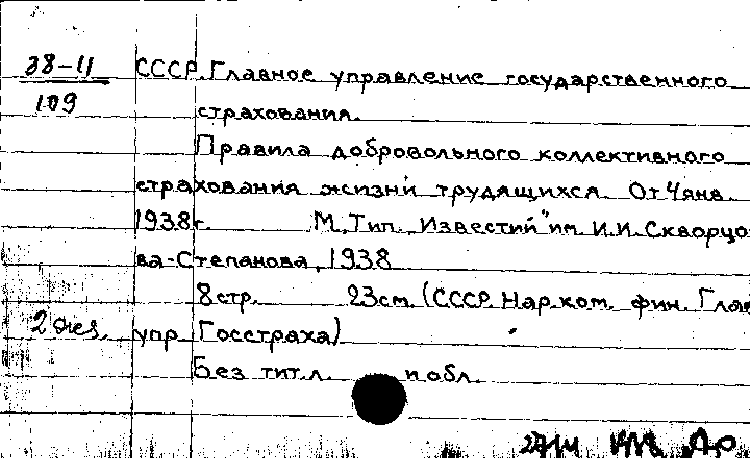 38-11
109
СССР. Главное управление государственного
страхования.
Правила добровольного коллективного
страхования жизни трудящихся. От 4 янв.
1938 г. М., Тип. „Известий" им. И.И. Скворцо
ва-Степанова, 1938
8 стр. 23 см. (СССР. Нар. ком. фин. Глав
2 экз. упр. Госстраха)
Без тит. л. и обл.